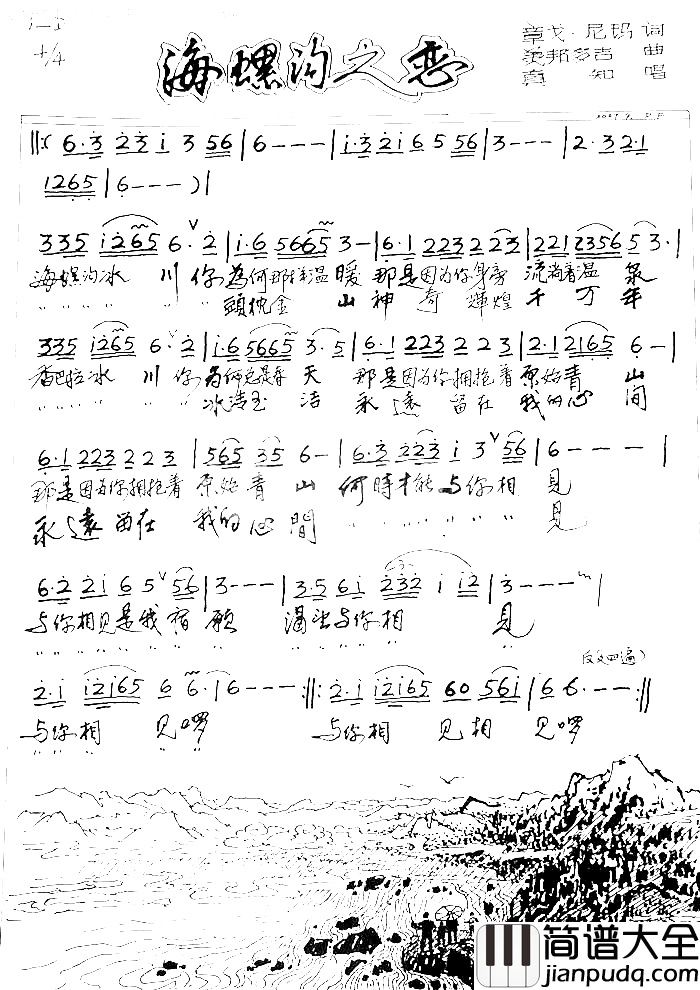 海螺沟之恋
章戈·尼玛 词
美邦多吉 曲
真知 唱
‖: 6·3 23 i 3 56 | 6 - - - | i·3 2i 6 5 56 | 3 - - - | 2·3 2·1
1265 | 6 - - - ) |
335 i265 6· 2 | i·6 5665 3 - | 6·1 223 2 23 | 221 23565 3· |
海螺沟冰 川 你 為何那样温 暖 那是因为你身旁 流淌着温 泉
〃 〃 〃 〃 〃 〃 頭枕金 山 神奇輝煌 千万年
335 i265 6· 2 | i·6 5665 3·5 | 6·1 223 2 2 3 | 2·1 2165 6 - |
香巴拉冰 川 你 天 那是因为你拥抱着 原始青 山
〃 〃 〃 〃 〃 〃 冰清玉 洁 永遠 留在 我的心 間
6·1 223 2 2 3 | 565 35 6 - | 6·3 223 i 3 56 | 6 - - - |
那是因为你拥抱着 原始青 山 何時才能 与你相 見
永遠 留在 我的心 間 〃 〃 〃 〃 〃 〃 〃 見
6·2 2i 6 5 56 | 3 - - - | 3·5 6i 232 i i2 | 3 - - - |
与你相見是我宿 願 与你相 見
(反复四遍)
2·i i2i65 6 6· | 6 - - - :‖: 2·i i2i65 60 56i | 6 6· - - :‖
与你相 見啰 与你相 見相 見啰
简谱大全
jianpudq.com